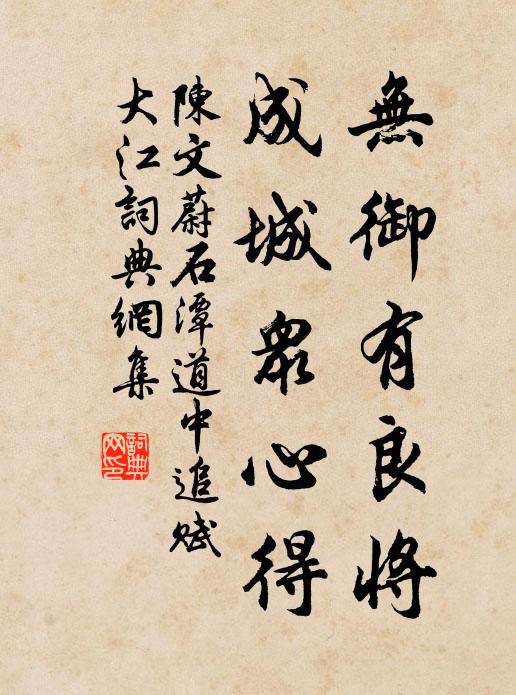 無御有良將
成城衆心得
陳文蔚石潭道中追賦
大江詞典網集
詞典網印